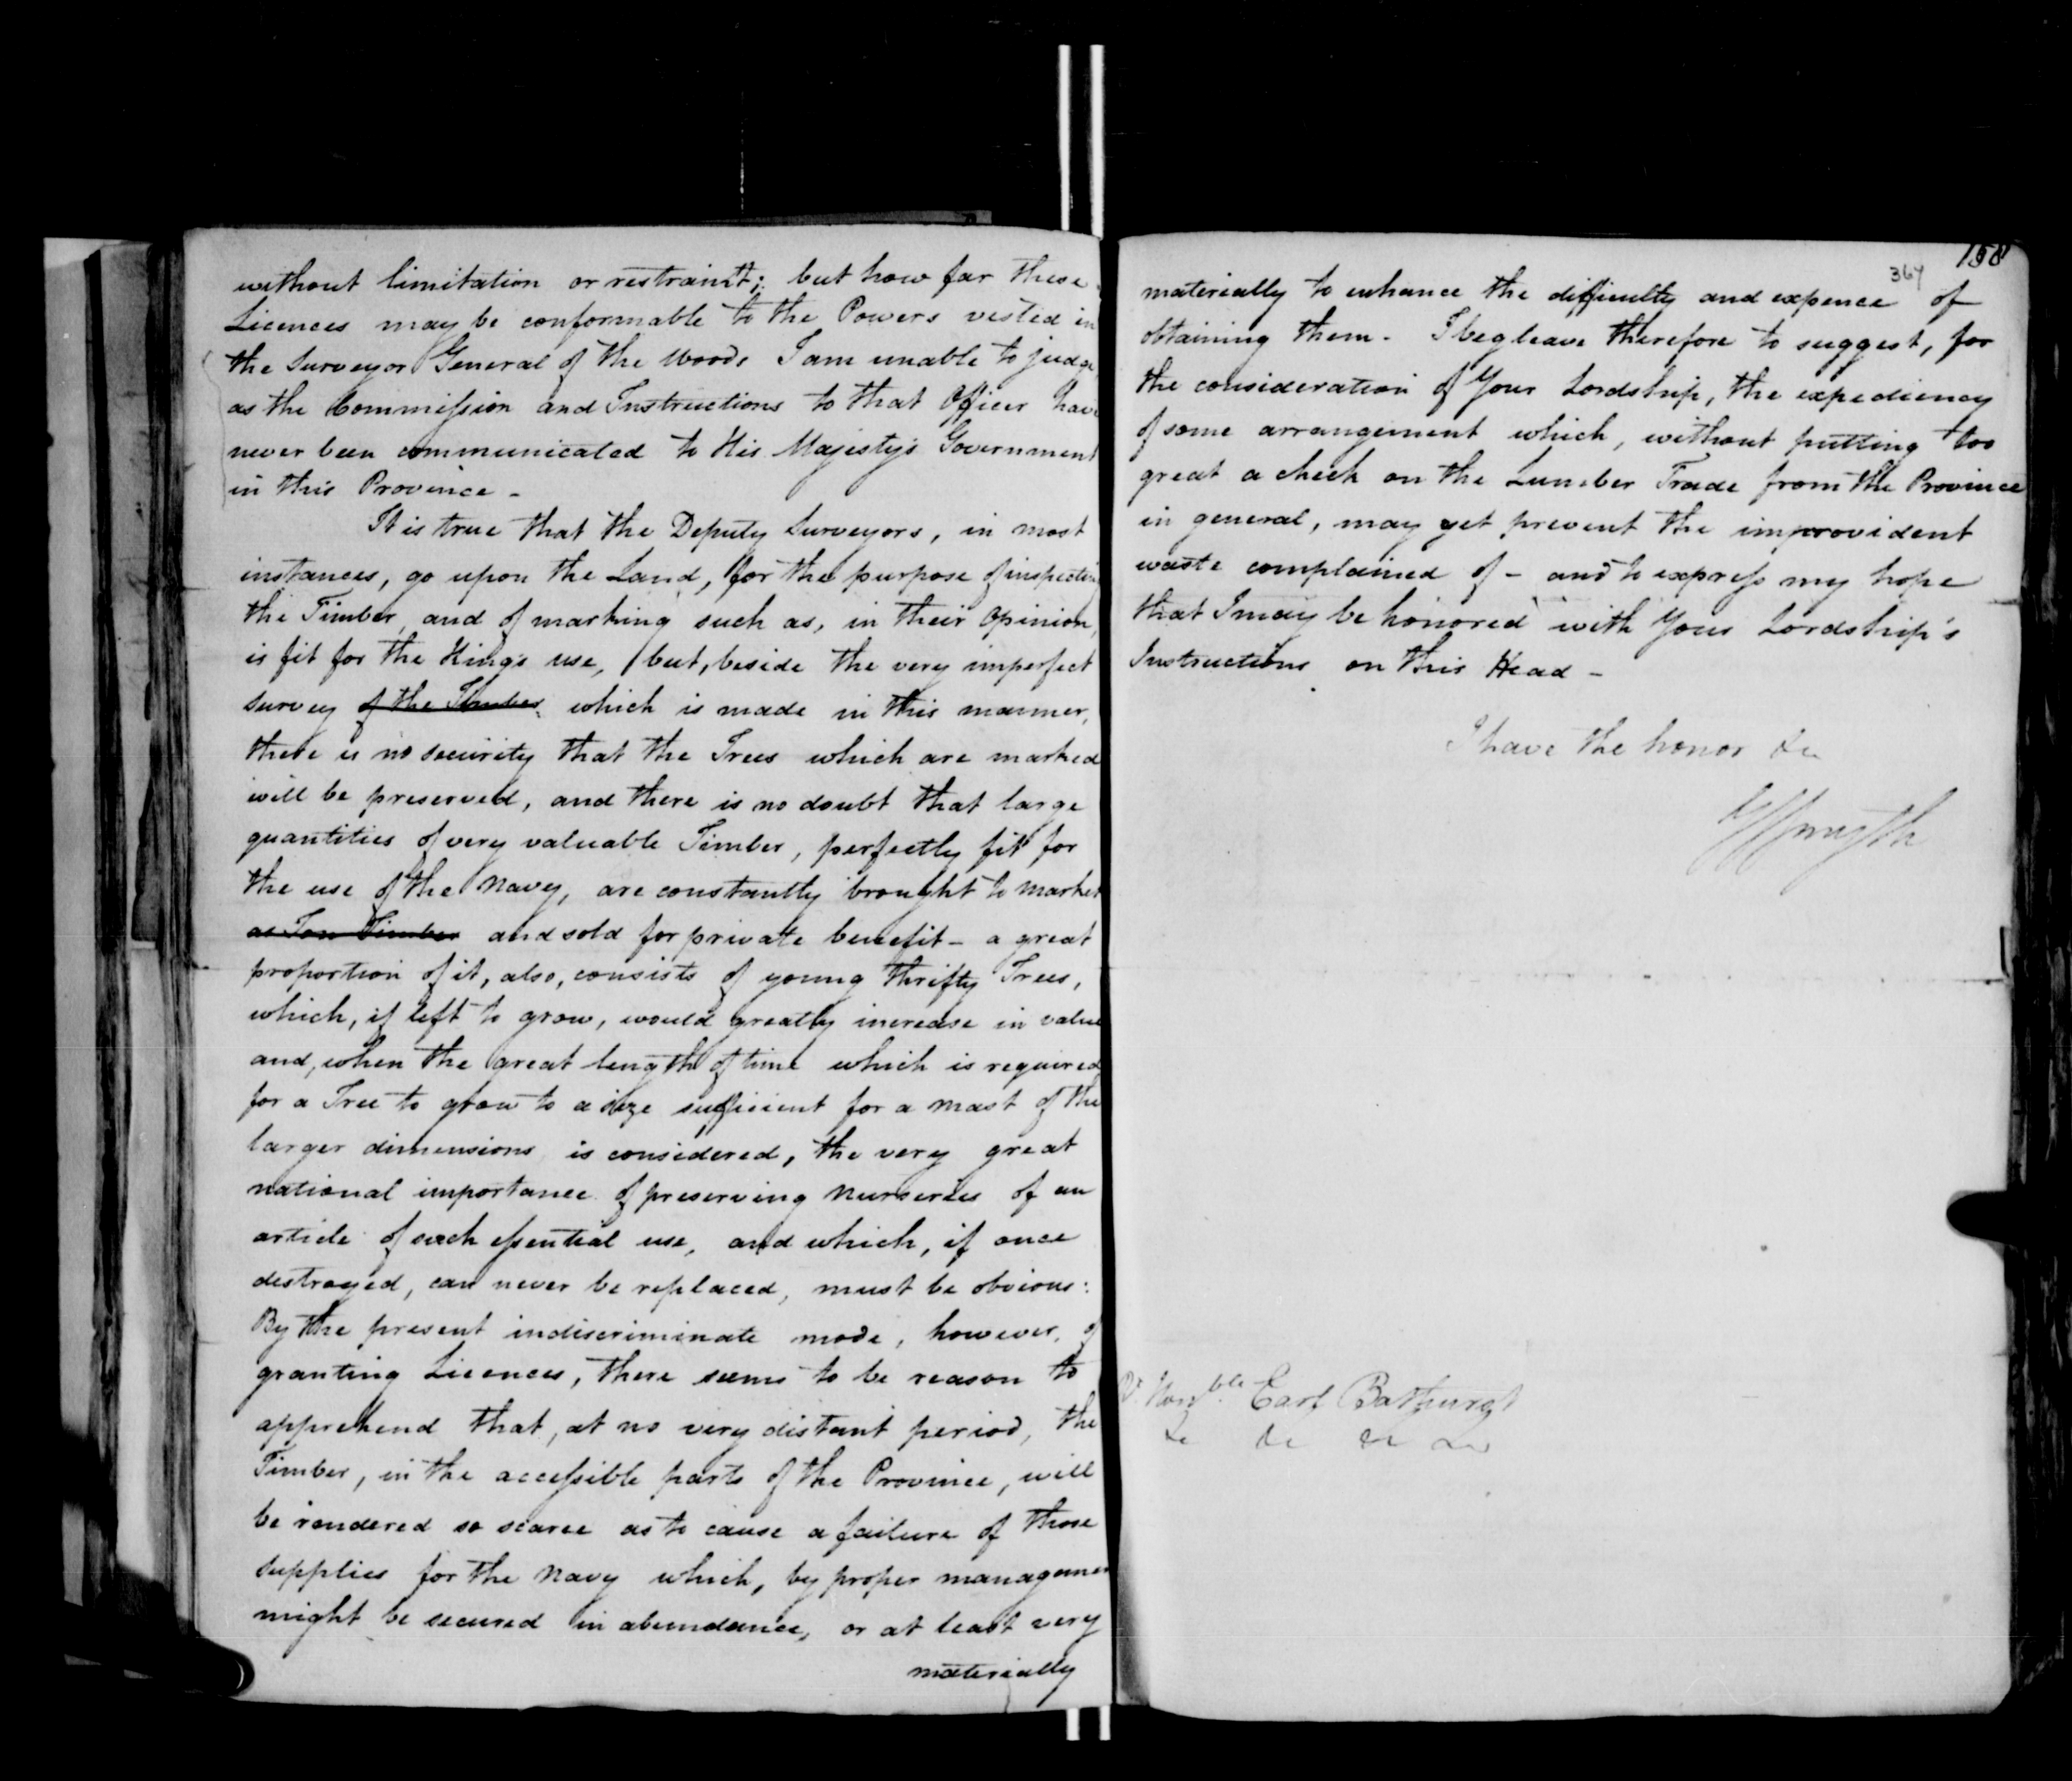 without limitation or restraint; but how far these
Licences may be conformable to the Powers vested in
the Surveyor General of the Woods I am unable to judge
as the Commission and Instructions to that Officer have
never been communicated to His Majesty's Government
in this Province -
It is true that the Deputy Surveyors, in most
instances, go upon the Land, for the purpose of inspecting
the Timber, and of marking such as, in their opinion,
is fit for the King's use, but, beside the very imperfect
survey of the Timber, which is made in this manner,
there is no security that the Trees which are marked
will be preserved, and there is no doubt that large
quantities of very valuable Timber, perfectly fit for
the use of the Navy, are constantly brought to market
as Ton Timber and sold for private benefit - a great
proportion of it, also, consists of young thrifty Trees,
which, if left to grow, would greatly increase in value
and, when the great length of time which is required
for a Tree to grow to a size sufficient for a mast of the
larger dimensions is considered, the very great
national importance of preserving nurseries of an
article of such essential use, and which, if once
destroyed, can never be replaced, must be obvious:
By the present indiscriminate mode, however, of
granting Licences, there seems to be reason to
apprehend that, at no very distant period, the
Timber, in the accessible parts of the Province, will
be rendered so scarce as to cause a failure of those
supplies for the Navy which, by proper managemen
might be secured in abundance, or at least very
materially
158
367
materially to enhance the difficulty and expence of
obtaining them - I beg leave therefore to suggest, for
the consideration of Your Lordship, the expediency
of some arrangement which, without putting too
great a check on the Lumber Trade from the Province
in general, may yet prevent the improvident
waste complained of - and to express my hope
that I may be honored with Your Lordship's
Instructions on this Head -
I have the honor &c
G S Smyth
Rt Honble Earl Bathurst
&c &c &c &c